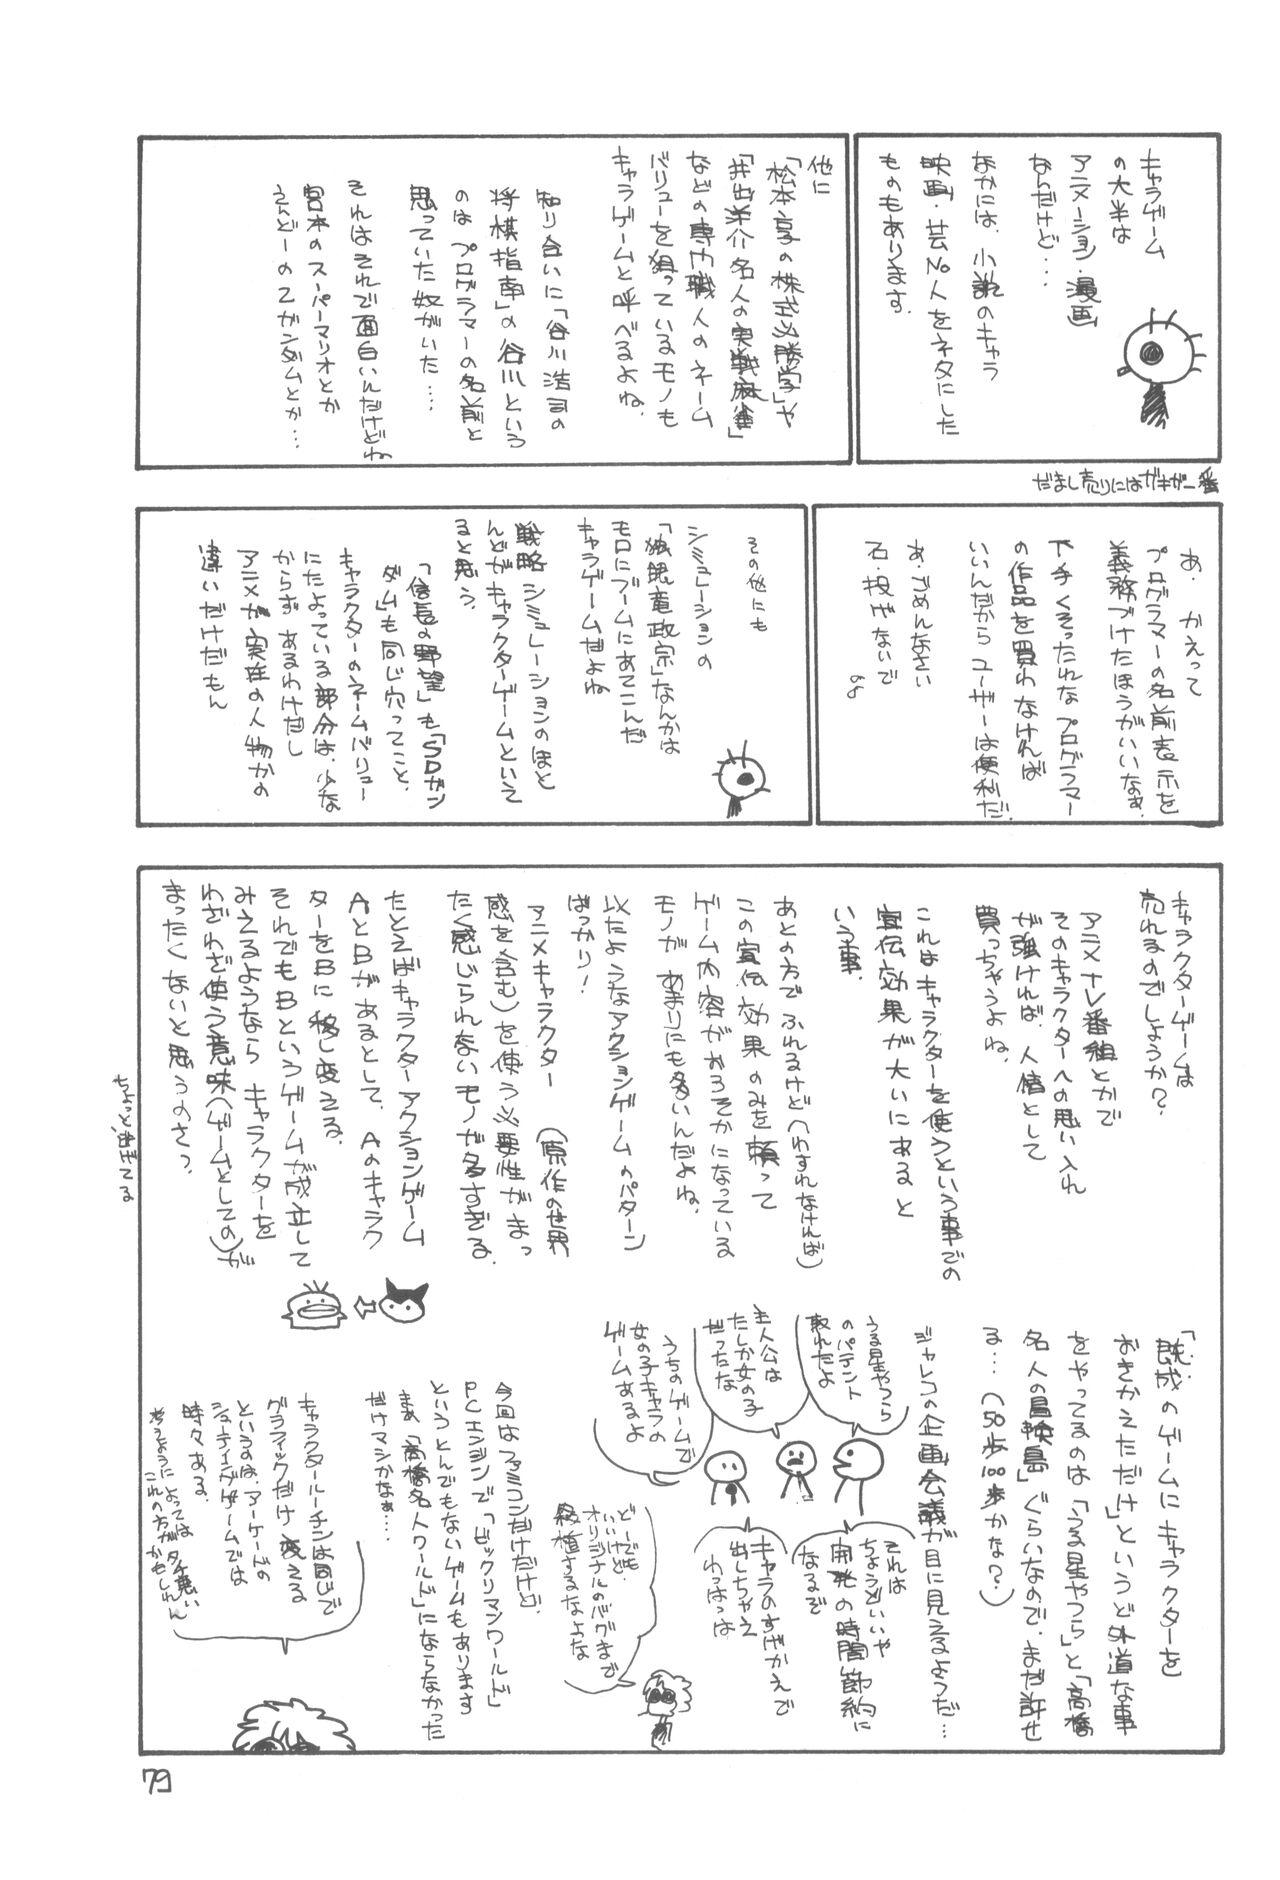 キャラゲーム
の大半は
アニメーション・漫画
なんだけど…
なかには、小説のキャラ
映画・芸No人をネタにした
ものもあります。
他に
「松本亨の株式必勝学」や
「井出洋介名人の実戦麻雀」
などの専門職人のネーム
バリューを狙っているモノも
キャラゲームと呼べるよね。
知り合いに「谷川浩司の
将棋指南」の谷川という
のはプログラマーの名前と
思っていた奴がいた…
それはそれで面白いんだけどね
宮本のスーパーマリオとか
えんどーのZガンダムとか…
だまし売りにはガキが一番
あ、かえって
プログラマーの名前表示を
義務づけたほうがいいなぁ
下手くそったれなプログラマー
の作品を買わなければ
いいんだからユーザーは便利だ。
あ・ごめんなさい
石・投げないで
その他にも
シミュレーションの
「独眼竜政宗」なんかは
モロにブームにあてこんだ
キャラゲームだよね
戦略シミュレーションのほと
んどがキャラクターゲームといて
ると思う。
「信長の野望」も「SDガン
ダム」も同じ穴ってこと、
キャラクターのネームバリュー
にたよっている部分は、少な
からず あるわけだし
アニメか実在の人物かの
違いだけだもん
キャラクターゲームは
売れるのでしょうか?
アニメ ナレ番組とかで
そのキャラクターへの思い入れ
が強ければ、人情として
買っちゃうよね。
これはキャラクターを使うという事での
宣伝効果が大いにあると
いう事。
あとの方でふれるけど(わすれなければ)
この宣伝効果のみを頼って
ゲーム内容がおろそかになっている
モノがあまりにも多いんだよね。
以たようなアクションゲームのパターン
ばっかり!
アニメキャラクター(原作の世界
感を含む)を使う必要性がまっ
たく感じられないモノが多すぎる。
たとえばキャラクターアクションゲーム
AとBがあるとして、Aのキャラク
ターをBに移し変える。
それでもBというゲームが成立して
みえるようなら キャラクターを
わざわざ使う意味(ゲームとしての)が
まったくないと思うのさっ。
ちょっと逃げてる
「既成のゲームにキャラクターを
おきかえただけ」というど外道な事
をやってるのは「うる星やつら」と「高橋
名人の冒険島」ぐらいなので、まだ許せ
る…(50歩100歩かな?)
ジャレコの企画会議が目に見えるようだ…
うる星やつら
のパテント
取れたよ
主人公は
たしか女の子
だったな
うちのゲームで
女の子キャラの
ゲームあるよ
それは
ちょうどいいや
開発の時間節約に
なるぞ
キャラのすげかえで
出しちゃえ
わっはっは
どーでも
いいけど、
オリジナルのバグまで
移植するなよな
今回はファミコンだけだけど、
PCエンジンで「ビックリマンワールド」
というとんでもないゲームもあります
まぁ「高橋名人ワールド」にならなかった
だけマシかなぁ…
キャラクタールーチンは同じで
グラフィックだけ変える
というのは、アーケードの
シューティングゲームでは
時々ある。
考えようによっては
これの方がタチ悪い
かもしれん
79